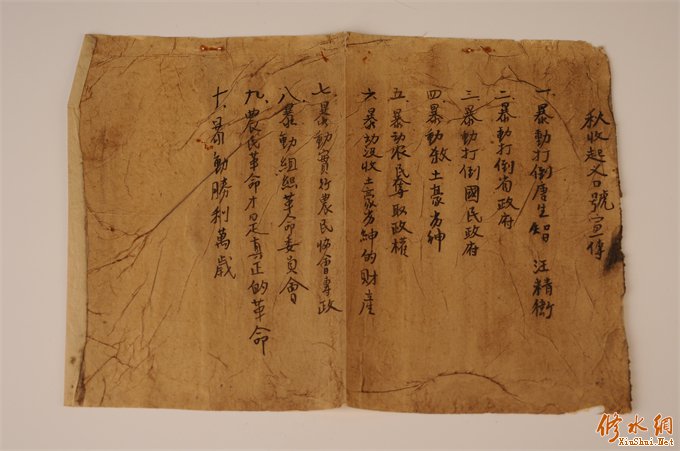 秋收起义口號宣傳
一、暴動打倒唐生智 汪精衛
二、暴動打倒省政府
三、暴動打倒國民政府
四、暴動殺土豪劣紳
五、暴动农民奪取政權
六、暴动没收土豪劣紳的财產
七、暴動實行農民協會專政
八、暴動組织革命委員會
九、農民革命才是真正的革命
十、暴動勝利萬歲
修水網
XiuShui.Net